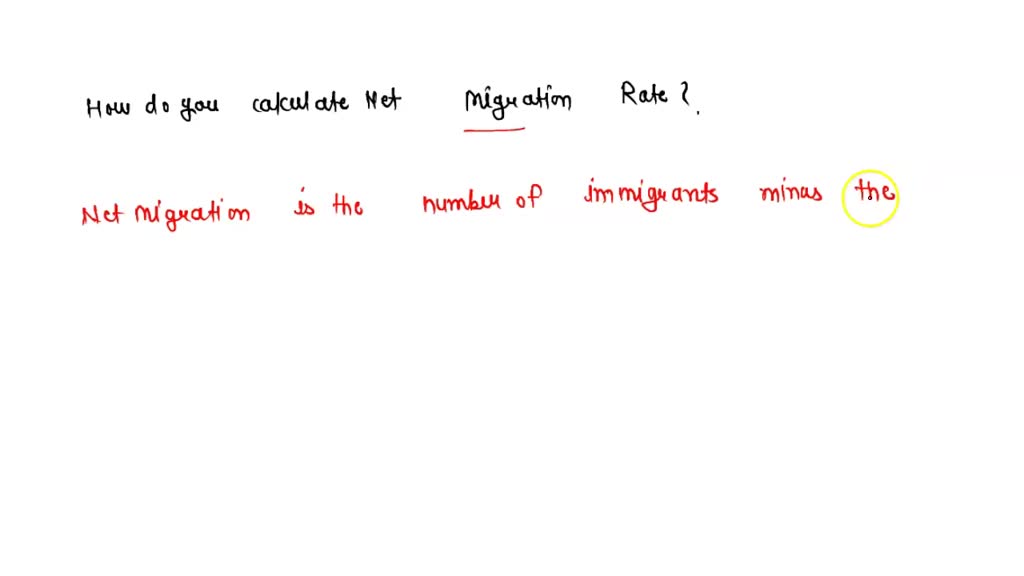 How do you calculate Net Migration Rate?
Net Migration is the number of immigrants minus the